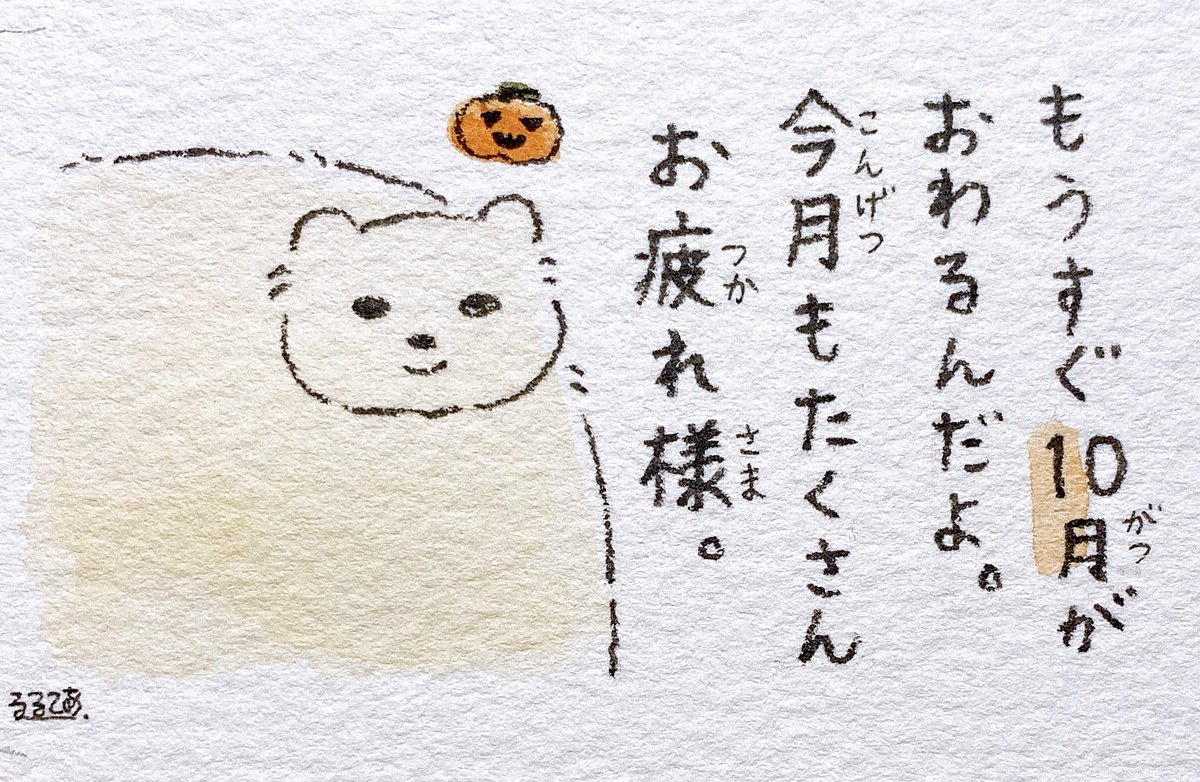 もうすぐ10月が
おわるんだよ。
今月もたくさん
お疲れ様。
がつ
こんげつ
つか
さま
るるてあ.